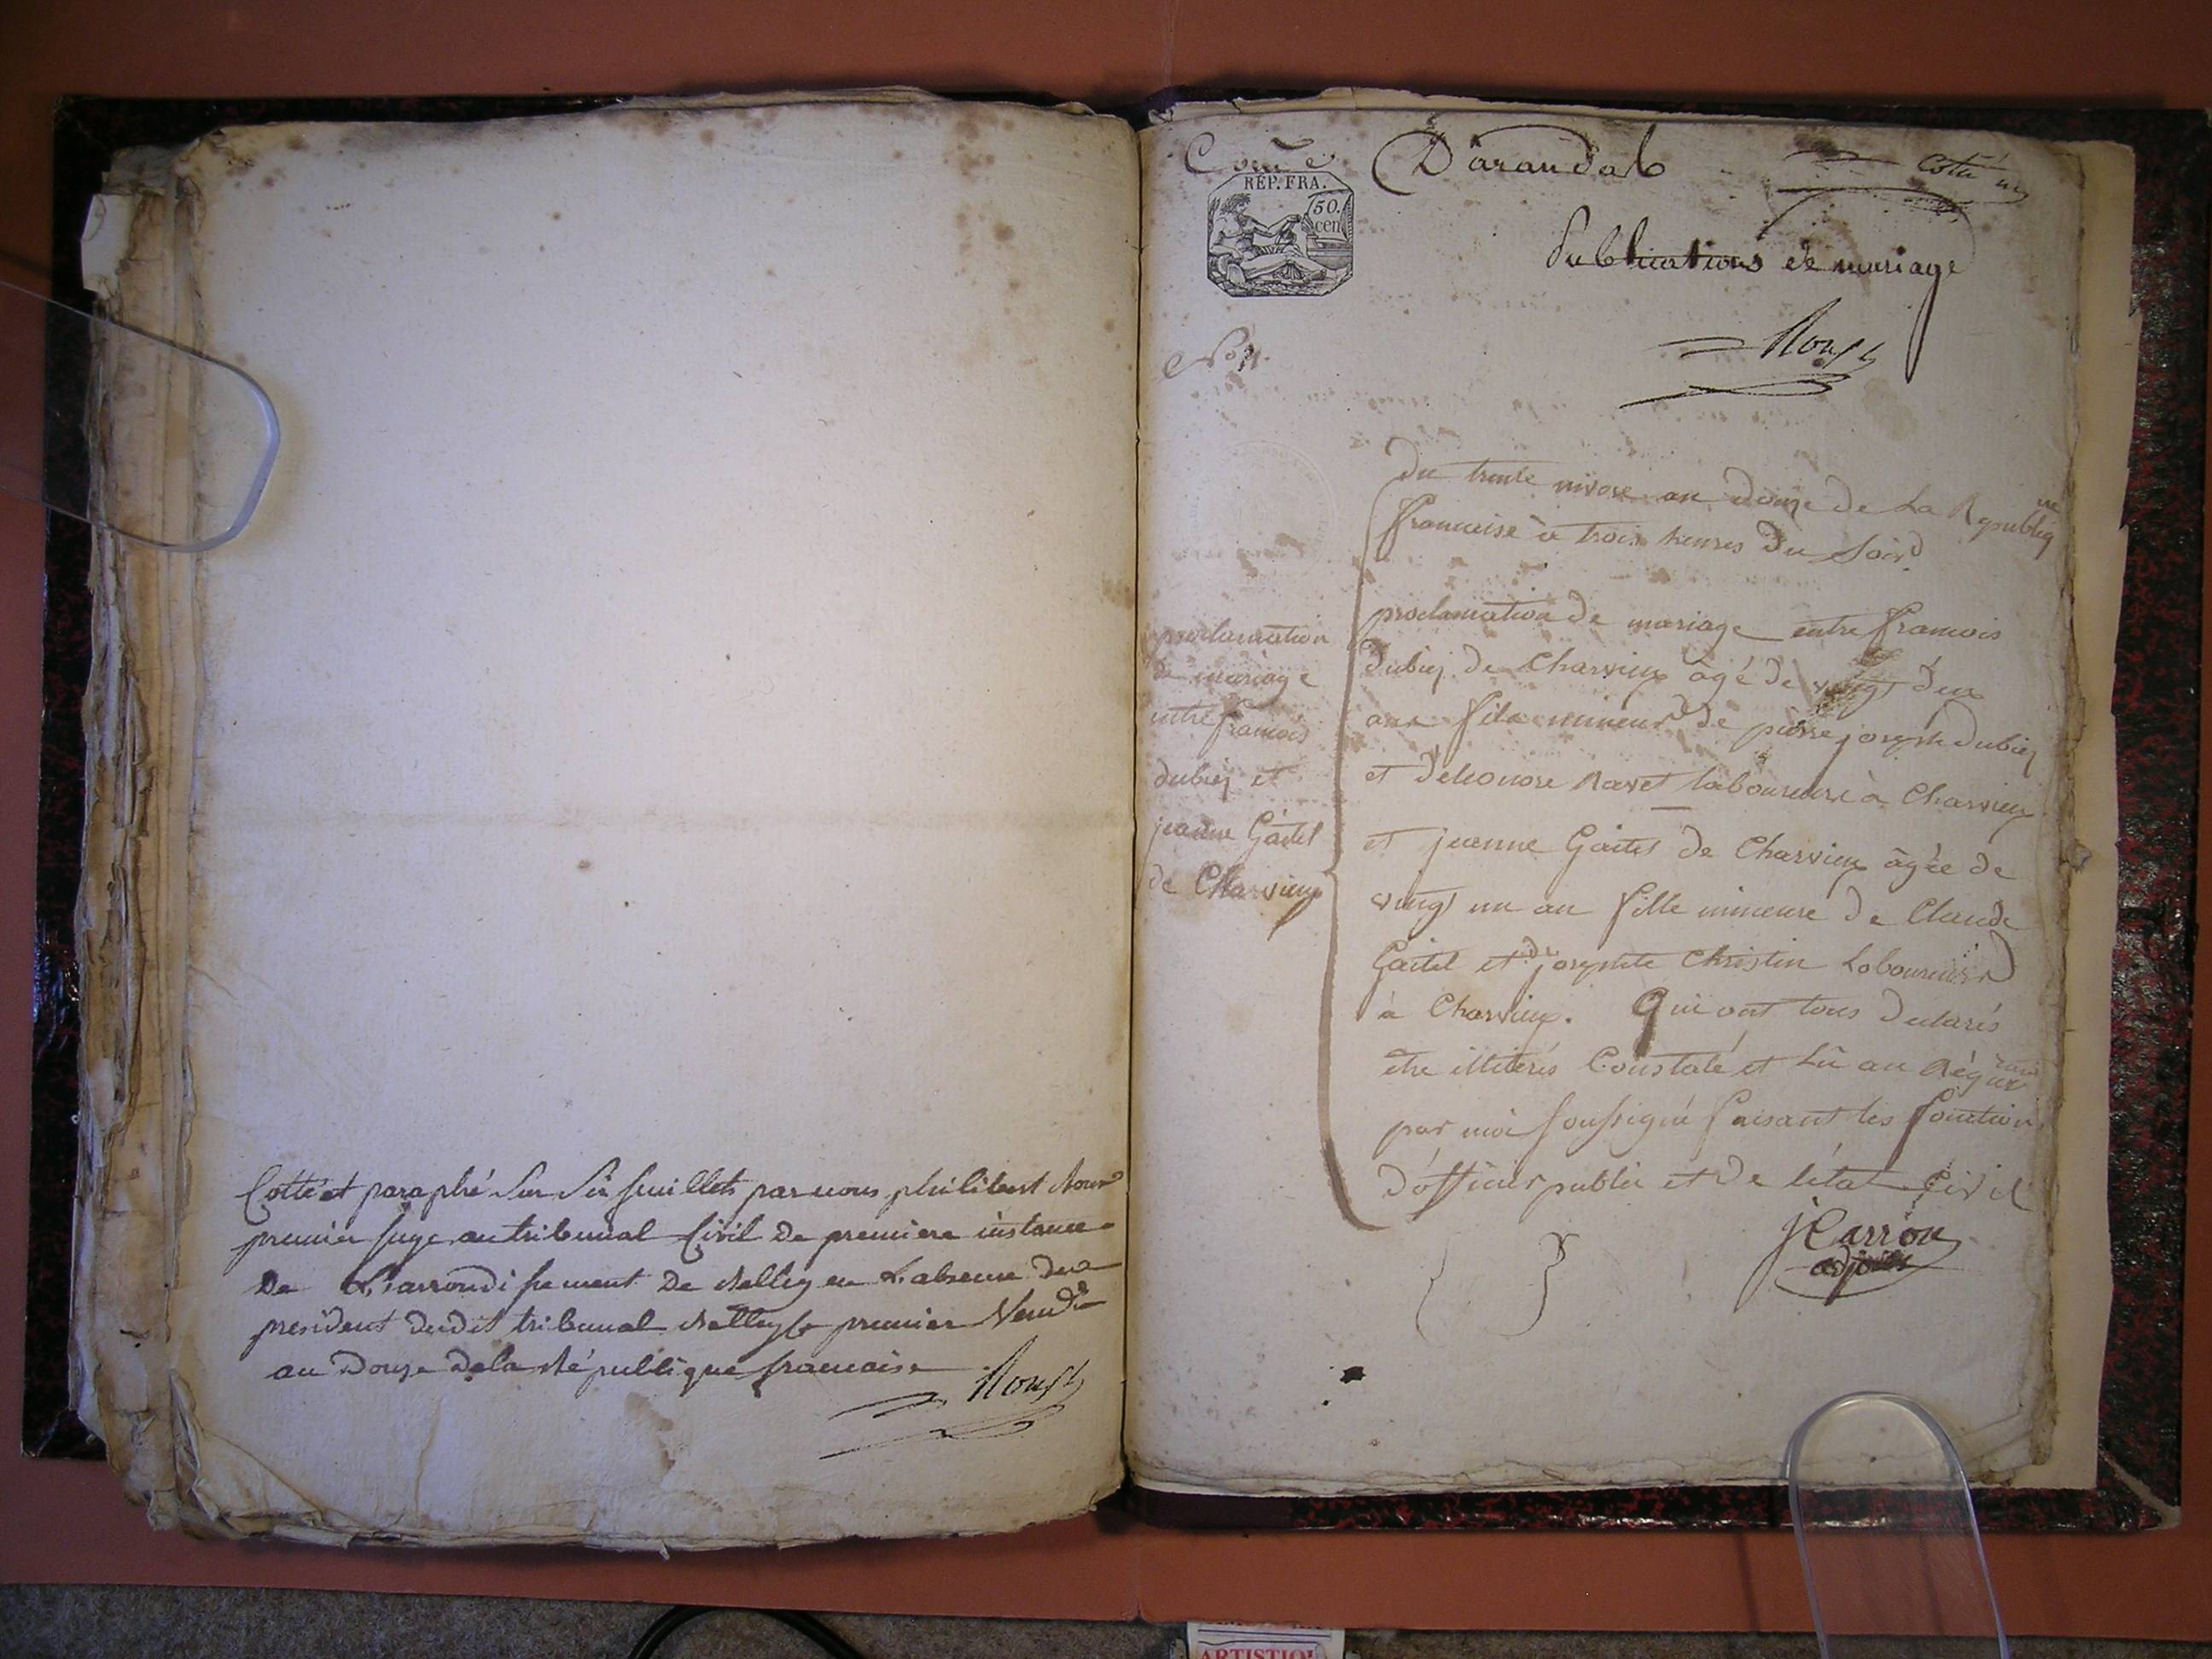 Cotté et paraphé Sur Six feuillets par nous philibert Roux
premier juge au tribunal Civil De premiere instance
De L'arrondissement De Belley en L'absence du
president dudit tribunal Belley le premier Vend.re
an Douze Dela République francaise
Roux
Com.e Darandab
RÉP. FRA.
50.
cen
Publications de mariage
Roux
No 1.
Du trente nivose an douze de La Republique
francaise à trois heures Du Soir
proclamation
de mariage
entre francois
dubiez et
jeanne Gaitet
de Charvieux
proclamation De mariage entre francois
Dubiez de Charvieux agé de vingt deux
ans fils mineur de pierre joseph Dubiez
et d'eleonore Ravet laboureurs à Charvieux
et jeanne Gaitet de Charvieux âgée de
vingt un an fille mineure de Claude
Gaitet et de josephte Christin Laboureurs
à Charvieux. Qui ont tous Déclarés
etre illiterés Constaté et Lû au
par moi soussigné faisant les fonction
d'officier public et De l'état Civil
jCarron
adjoint
ARTISTIQU